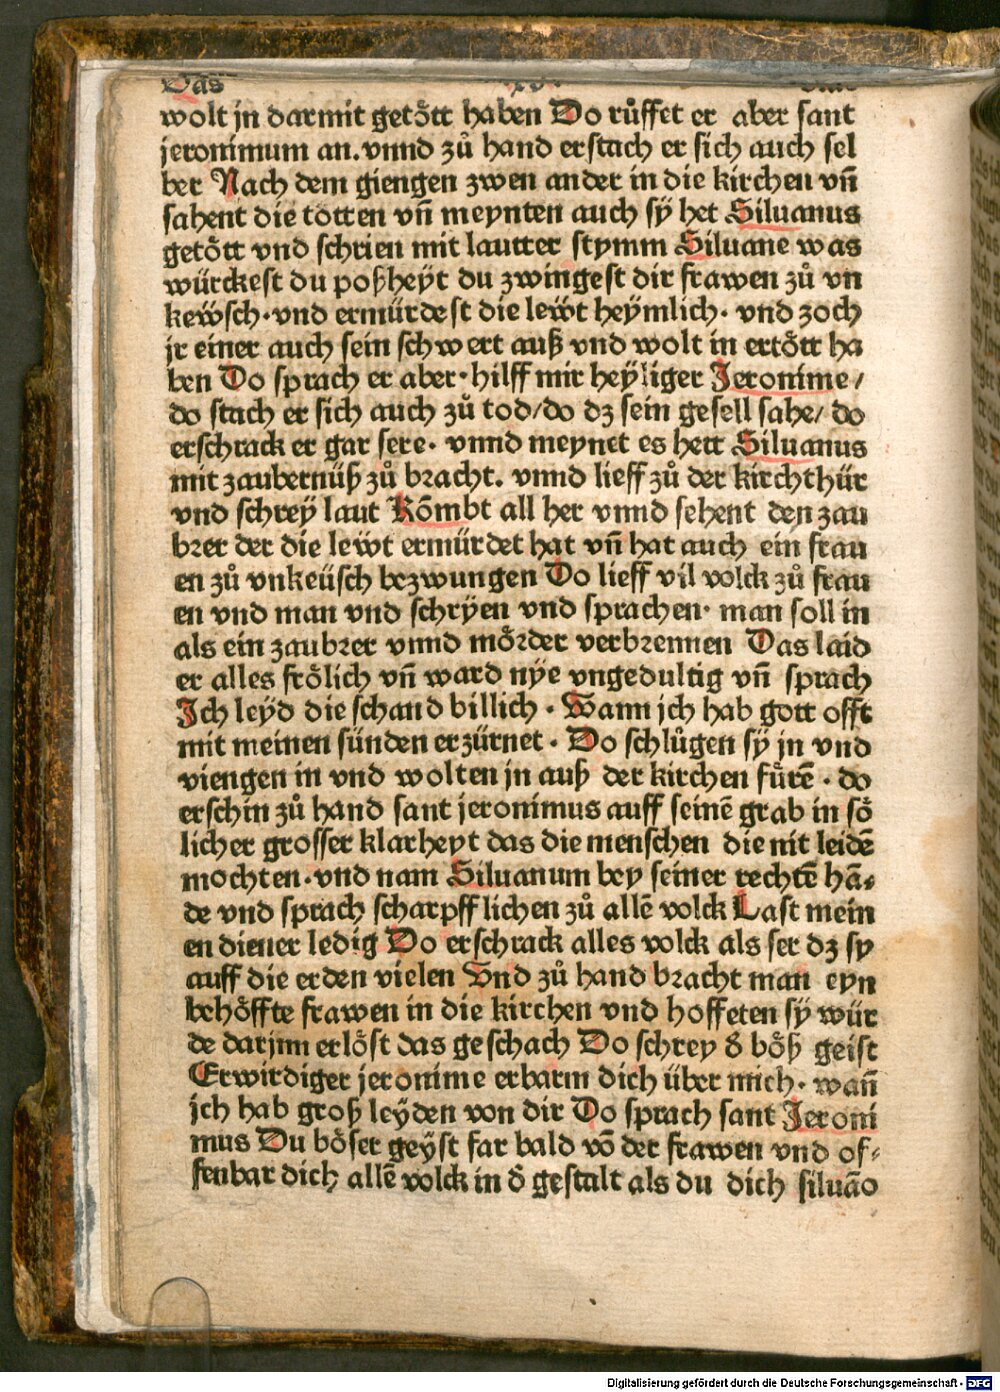 Das xv
wolt jn darmit getött haben Do růffet er aber sant
jeronimum an. vnnd zů hand erstach er sich auch sel
ber Nach dem giengen zwen ander in die kirchen vñ
sahent die totten vñ meynten auch sÿ het Siluanus
getött vnd schrien mit lautter stymm Siluane was
würckest du poßheyt du zwingest dir frawen zů vn
keẅsch·vnd ermürdest die leẅt heÿmlich· vnd zoch
jr einer auch sein schwert auß vnd wolt in ertött ha
ben Do sprach er aber·hilff mir heÿliger Jeronime/
do stach er sich auch zů tod/do dz sein gesell sahe/ do
erschrack er gar sere· vnnd meynet es hett Siluanus
mit zaubernüß zů bracht. vnnd lieff zů der kirchthür
vnd schreÿ laut Kōmbt all her vnnd sehent den zau
brer der die leẅt ermürdet hat vñ hat auch ein frau
en zů vnkeüsch bezwungen Do lieff vil volck zů frau
en vnd man vnd schrÿen vnd sprachen· man soll in
als ein zaubrer vnnd mörder verbrennen Das laid
er alles frölich vñ ward nÿe vngedultig vñ sprach
Ich leÿd die schand billich · Wann jch hab gott offt
mit meinen sünden erzürnet · Do schlůgen sÿ jn vnd
viengen in vnd wolten jn auß der kirchen fürē · do
erschin zů hand sant jeronimus auff seinē grab in sö
licher grosser klarheyt das die menschen die nit leidē
mochten·vnd nam Siluanum bey seiner rechtē hā⸗
de vnd sprach scharpfflichen zů allē volck Last mein
en diener ledig Do erschrack alles volck als ser dz sy
auff die erden vielen Vnd zů hand bracht man eyn
behöffte frawen in die kirchen vnd hoffeten sÿ wür
de darjnn erlöst das geschach Do schrey d̄ böß geist
Erwirdiger jeronime erbarm dich über mich· wañ
jch hab groß leÿden von dir Do sprach sant Jeroni
mus Du böser geÿst far bald vō der frawen vnd of⸗
fenbar dich allē volck in d̄ gestalt als du dich siluāo
Digitalisierung gefördert durch die Deutsche Forschungsgemeinschaft - DFG